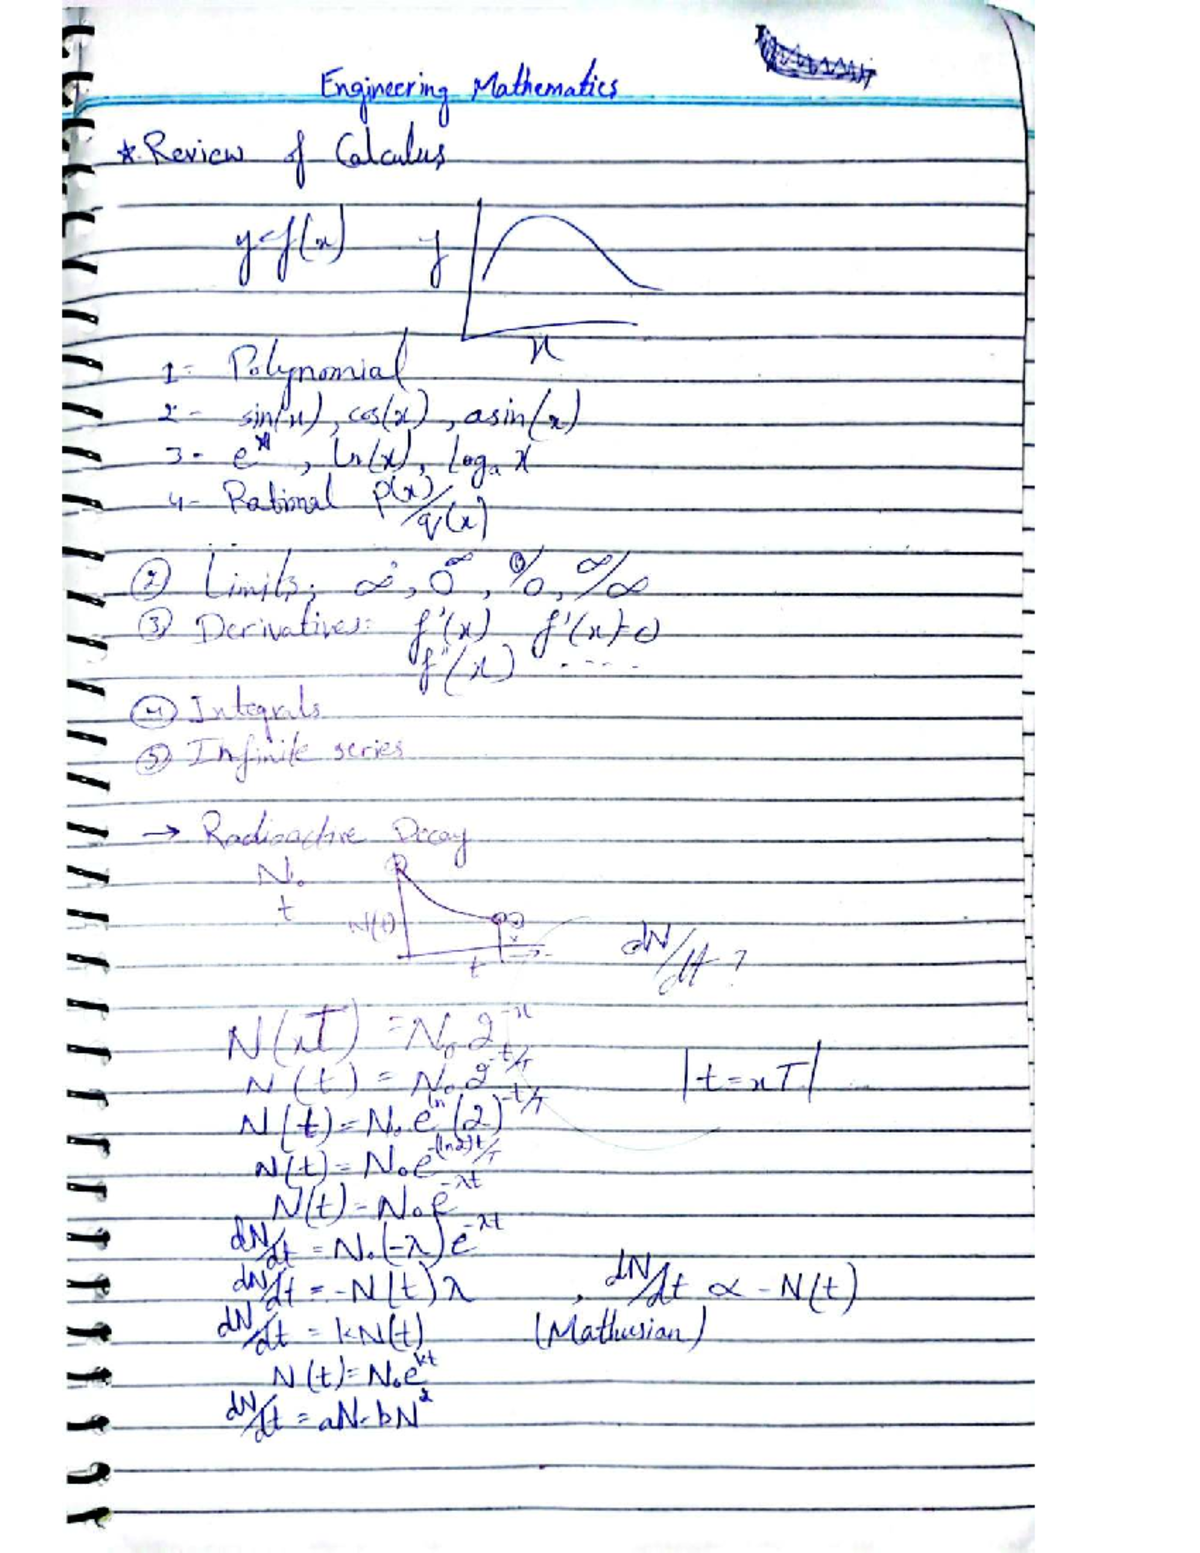 Engineering Mathematics
* Review of Calculus
y=f(x) y
x
1- Polynomial
2- sin(x), cos(x), asin(x)
3- eˣ, ln(x), logₐ x
4- Rational p(x)/q(x)
② Limits: ∞°, 0^∞, 0/0, ∞/∞
③ Derivatives: f'(x) f'(x)=0
f''(x) .....
④ Integrals
⑤ Infinite series
→ Radioactive Decay
N₀
t
N(t)
t
dN/dt ?
N(xT) = N₀ 2^-x
N(t) = N₀ 2^-t/T |t=xT|
N(t) = N₀ e^ln(2)^-t/T
N(t) = N₀ e^-(ln2)t/T
N(t) = N₀ e^-λt
dN/dt = N₀(-λ)e^-λt
dN/dt = -N(t)λ , dN/dt ∝ -N(t)
dN/dt = kN(t) (Mathusian)
N(t) = N₀e^kt
dN/dt = aN-bN²